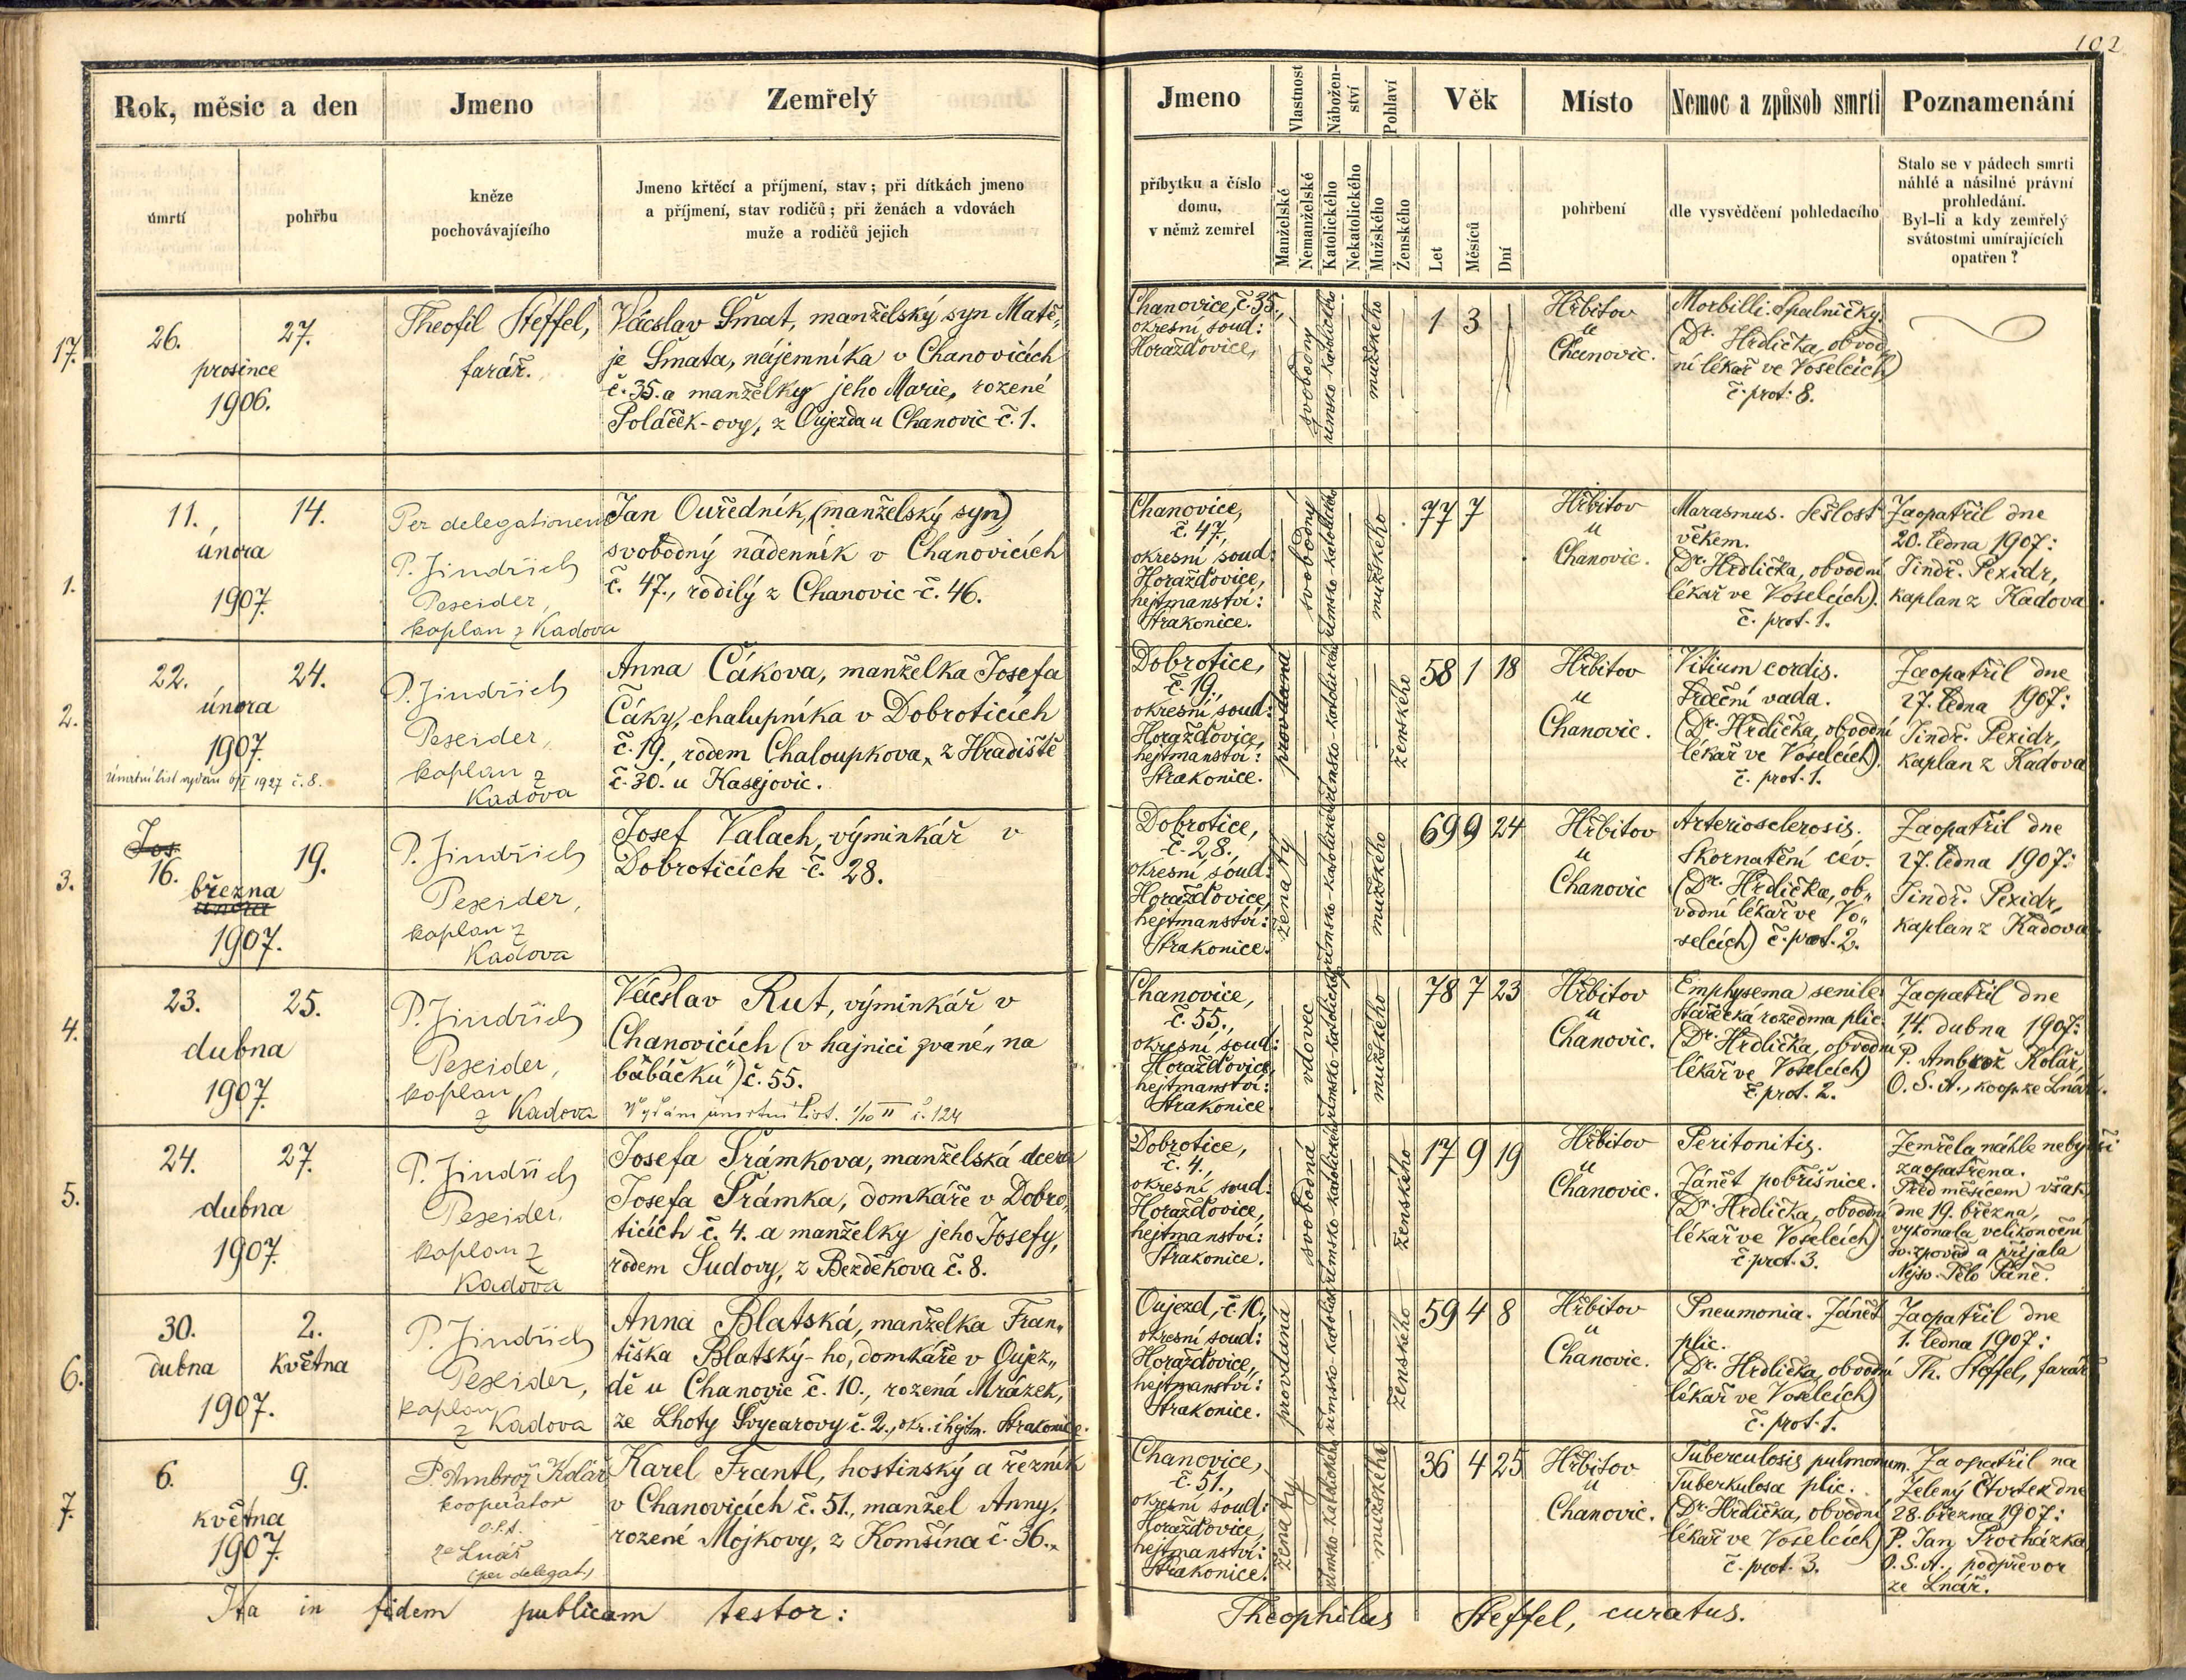 102
Rok, měsic a den
Jmeno
Zemřelý
úmrtí
pohřbu
kněze
pochovávajícího
Jmeno křtěcí a příjmení, stav; při dítkách jmeno
a příjmení, stav rodičů; při ženách a vdovách
muže a rodičů jejich
Jmeno
Vlastnost
Nábožen-
ství
Pohlaví
Věk
Místo
Nemoc a způsob smrti
Poznamenání
příbytku a číslo
domu,
v němž zemřel
Manželské
Nemanželské
Katolického
Nekatolického
Mužského
Ženského
Let
Měsíců
Dní
pohřbení
dle vysvědčení pohledacího
Stalo se v pádech smrti
náhlé a násilné právní
prohledání.
Byl-li a kdy zemřelý
svátostmi umírajících
opatřen?
17.
26.
27.
prosince
1906.
Theofil Steffel,
farář.
Václav Šmat, manželský syn Matě-
je Šmata, nájemníka v Chanovicích
č. 35. a manželky jeho Marie, rozené
Poláček-ovy, z Oujezda u Chanovic č. 1.
Chanovice, č. 35.,
okresní soud:
Horažďovice,
svobodný
římsko-katolického
mužského
1 3
Hřbitov
u
Chanovic.
Morbilli. Spalničky.
(Dr. Hrdlička, obvod-
ní lékař ve Voselcích)
č. prot: 8.
1.
11.,
14.
února
1907.
Per delegationem
P. Jindřich
Pexeider,
kaplan z Kadova
Jan Ouředník, (manželský syn)
svobodný nádenník v Chanovicích
č. 47., rodilý z Chanovic č. 46.
Chanovice,
č. 47,
okresní soud:
Horažďovice,
hejtmanství:
Strakonice.
svobodný
římsko-katolického
mužského
77 7
Hřbitov
u
Chanovic.
Marasmus. Sešlost
věkem.
(Dr. Hrdlička, obvodní
lékař ve Voselcích).
č. prot. 1.
Zaopatřil dne
20. ledna 1907:
Jindř. Pexidr,
kaplan z Kadova.
2.
22.
24.
února
1907.
Úmrtní list vydán 6/I 1927 č. 8.
P. Jindřich
Pexeider,
kaplan z
Kadova
Anna Čákova, manželka Josefa
Čáky, chalupníka v Dobroticích
č. 19., rodem Chaloupkova, z Hradiště
č. 30. u Kasejovic.
Dobrotice,
č. 19.,
okresní soud:
Horažďovice,
hejtmanství:
Strakonice.
provdaná
římsko-katolického
ženského
58 1 18
Hřbitov
u
Chanovic.
Vitium cordis.
Srdeční vada.
(Dr. Hrdlička, obvodní
lékař ve Voselcích).
č. prot. 1.
Zaopatřil dne
27. ledna 1907:
Jindř. Pexidr,
kaplan z Kadova
3.
Jos.
16.
19.
března
února
1907.
P. Jindřich
Pexeider,
kaplan z
Kadova
Josef Valach, výminkář v
Dobroticích č. 28.
Dobrotice,
č. 28.
okresní soud:
Horažďovice,
hejtmanství:
Strakonice.
ženatý
římsko-katolického
mužského
69 9 24
Hřbitov
u
Chanovic
Arteriosclerosis.
Skornatění cév.
(Dr. Hrdlička, ob-
vodní lékař ve Vo-
selcích) č. prot. 2.
Zaopatřil dne
27. ledna 1907:
Jindř. Pexidr,
kaplan z Kadova.
4.
23.
25.
dubna
1907.
P. Jindřich
Pexeider,
kaplan
z Kadova
Václav Rut, výminkář v
Chanovicích (v hajnici zvané „na
babáčku") č. 55.
Vydán úmrtní list. 1/10 II č. 124
Chanovice,
č. 55.,
okresní soud:
Horažďovice,
hejtmanství:
Strakonice.
vdovec
římsko-katolického
mužského
78 7 23
Hřbitov
u
Chanovic.
Emphysema senile.
Stařecká rozedma plic.
(Dr. Hrdlička, obvodní
lékař ve Voselcích)
č. prot. 2.
Zaopatřil dne
14. dubna 1907:
P. Ambrož Kolář,
O. S. A., koop. ze Lnář.
5.
24.
27.
dubna
1907.
P. Jindřich
Pexeider,
kaplan z
Kadova
Josefa Šrámkova, manželská dcera
Josefa Šrámka, domkáře v Dobro-
ticích č. 4. a manželky jeho Josefy,
rodem Sudovy, z Bezděkova č. 8.
Dobrotice,
č. 4.,
okresní soud:
Horažďovice,
hejtmanství:
Strakonice.
svobodná
římsko-katolického
ženského
17 9 19
Hřbitov
u
Chanovic.
Peritonitis.
Zánět pobřišnice.
(Dr. Hrdlička, obvodní
lékař ve Voselcích)
č. prot. 3.
Zemřela náhle nebyvši
zaopatřena.
Před měsícem však,
dne 19. března,
vykonala velikonoční
sv. zpověď a přijala
Nejsv. Tělo Páně.
6.
30.
2.
dubna
května
1907.
P. Jindřich
Pexeider,
kaplan
z Kadova
Anna Blatská, manželka Fran-
tiška Blatský-ho, domkáře v Oujez-
dě u Chanovic č. 10., rozená Mrázek,
ze Lhoty Švycarovy č. 2., okr. i hejtm. Strakonice.
Oujezd, č. 10,
okresní soud:
Horažďovice,
hejtmanství:
Strakonice.
provdaná
římsko-katolického
ženského
59 4 8
Hřbitov
u
Chanovic.
Pneumonia. Zánět
plic.
(Dr. Hrdlička, obvodní
lékař ve Voselcích)
č. prot. 1.
Zaopatřil dne
1. ledna 1907:
Th. Steffel, farář
7.
6.
9.
května
1907.
P. Ambrož Kolář
kooperator
O.S.A.
ze Lnář
(per delegat.)
Karel Frantl, hostinský a řezník
v Chanovicích č. 51., manžel Anny,
rozené Mojkovy, z Komšína č. 36.
Chanovice,
č. 51.,
okresní soud:
Horažďovice,
hejtmanství:
Strakonice.
ženatý
římsko-katolického
mužského
36 4 25
Hřbitov
u
Chanovic.
Tuberculosis pulmonum.
Tuberkulosa plic.
(Dr. Hrdlička, obvodní
lékař ve Voselcích)
č. prot. 3.
Zaopatřil na
Zelený Čtvrtek dne
28. března 1907:
P. Jan Procházka,
O. S. A., podpřevor
ze Lnář.
Ita in fidem publicam testor:
Theophilus Steffel, curatus.